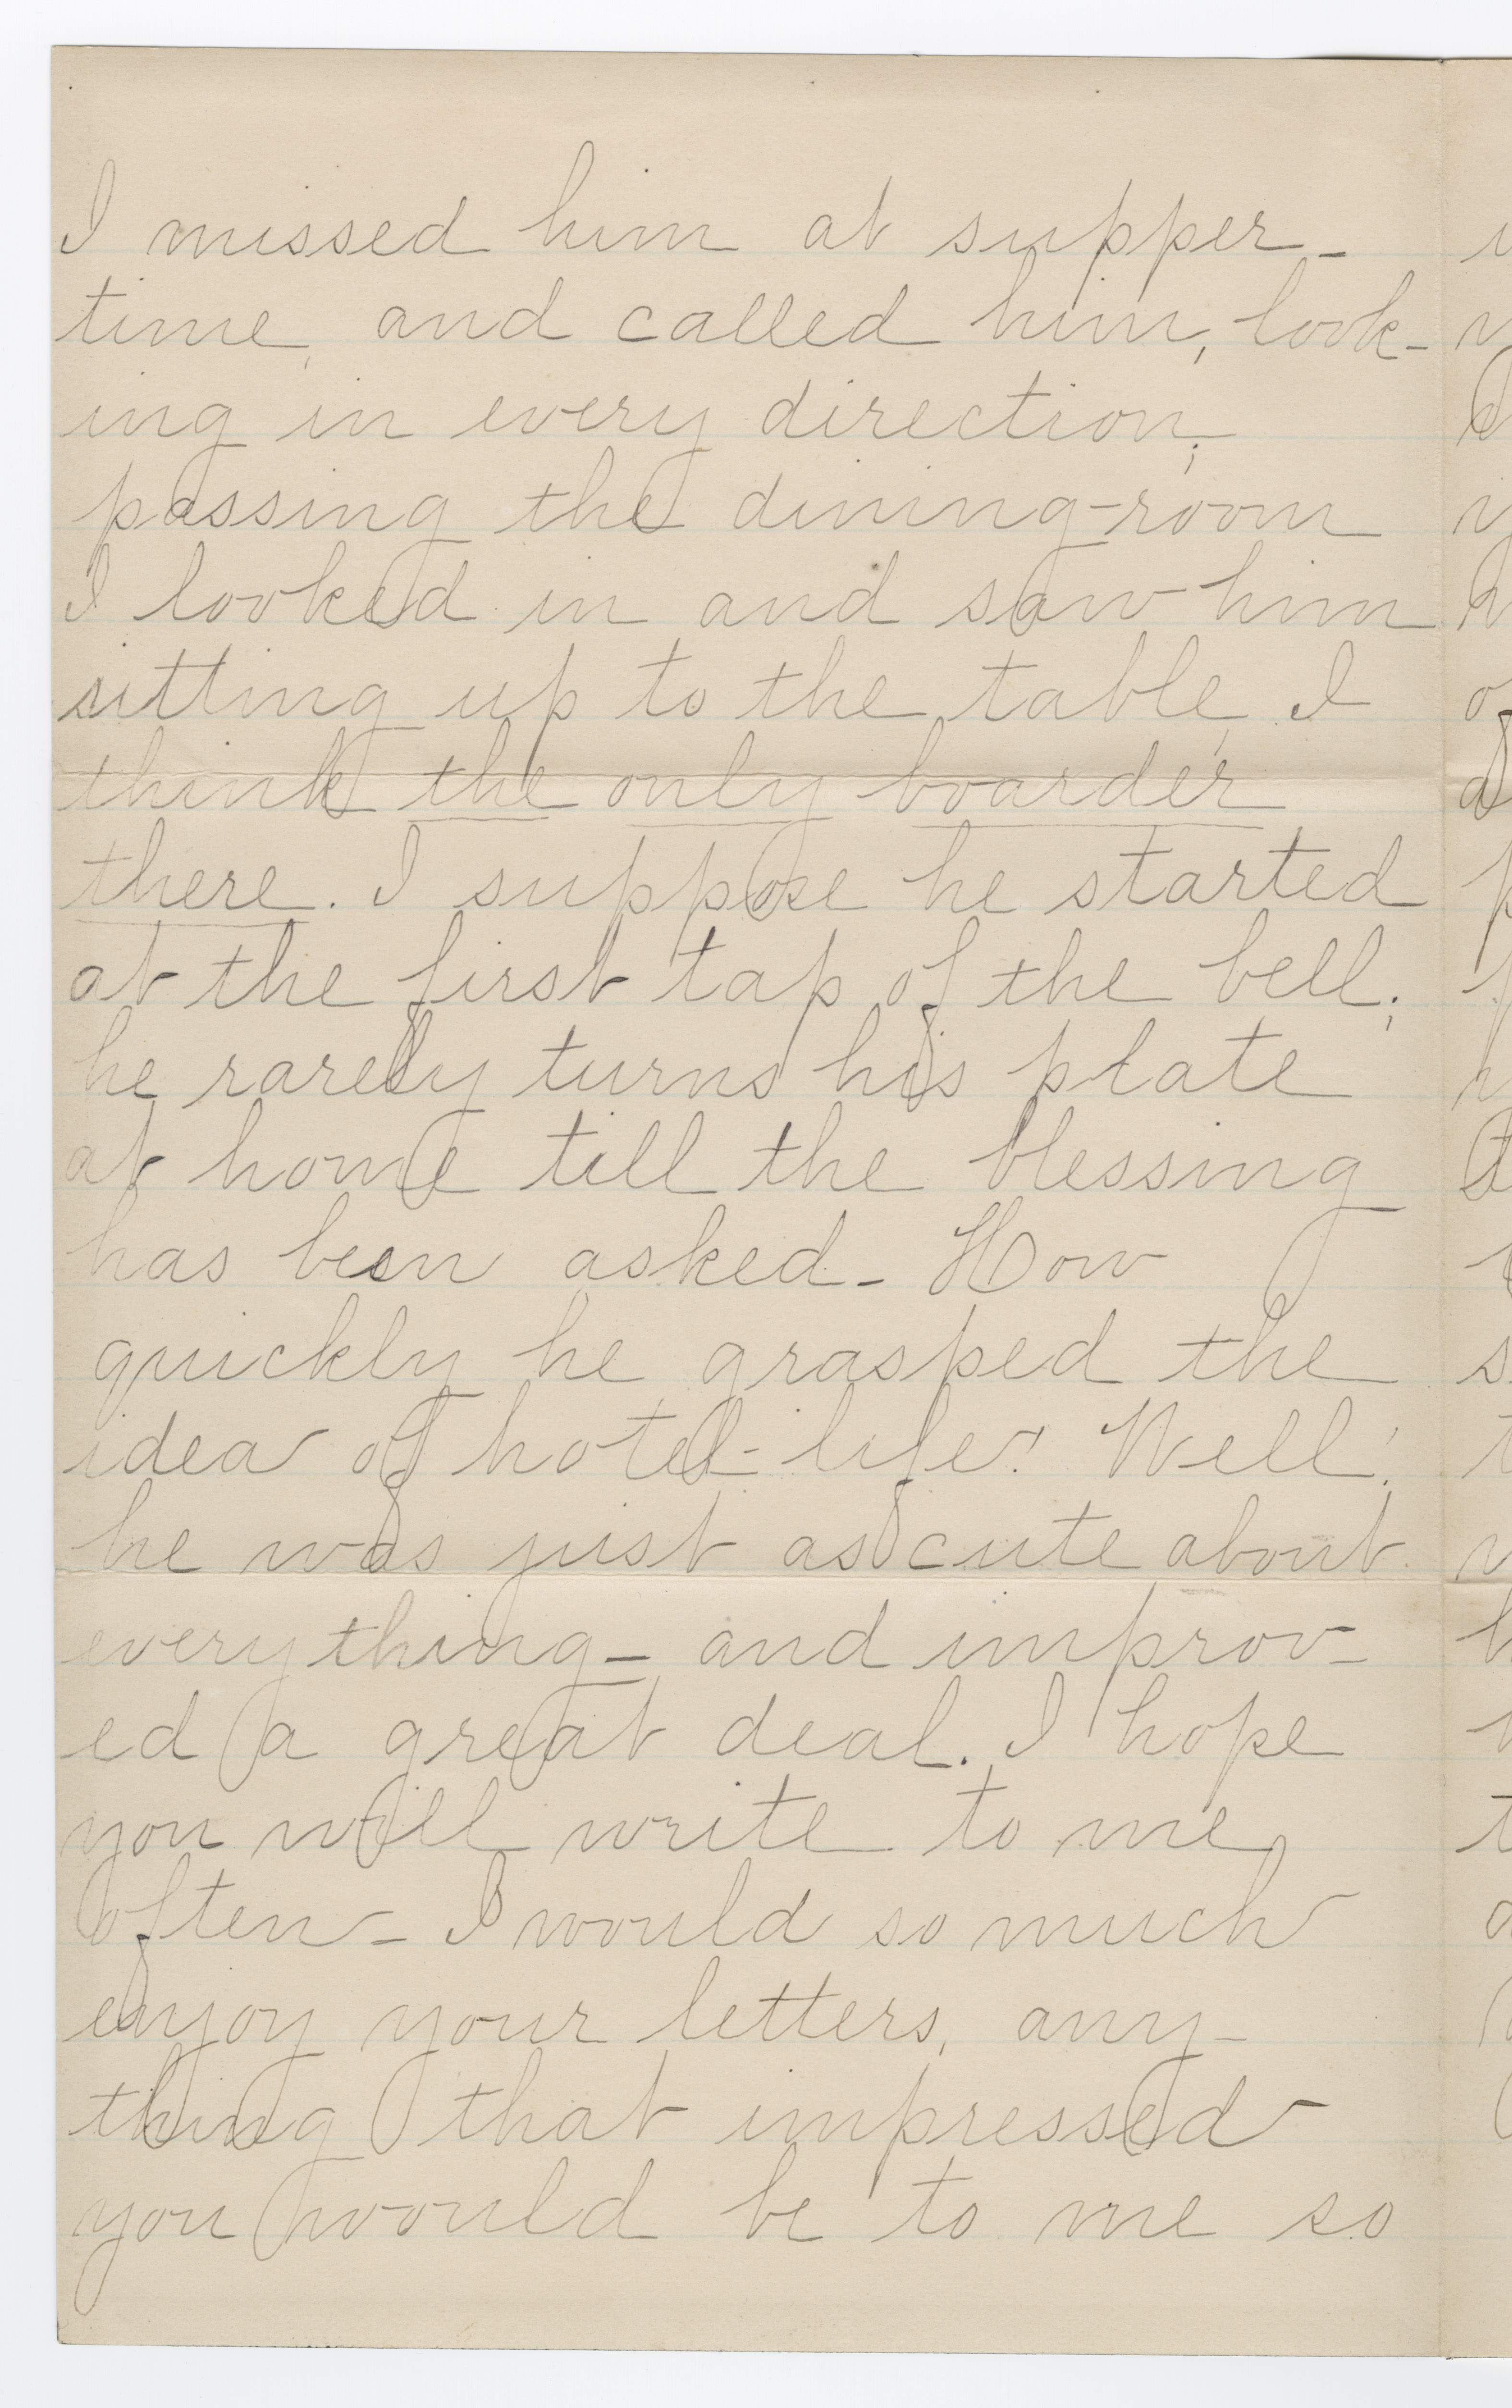 I missed him at supper-
time, and called him, look-
ing in every direction;
passing the dining-room
I looked in and saw him
sitting up to the table, I
think the only boarder
there. I suppose he started
at the first tap of the bell;
he rarely turns his plate
at home till the blessing
has been asked- How
quickly he grasped the
idea of hotel-life! Well!
he was just as cute about
everything- and improv-
ed a great deal. I hope
you will write to me
often- I would so much
enjoy your letters, any-
thing that impressed
you would be to me so